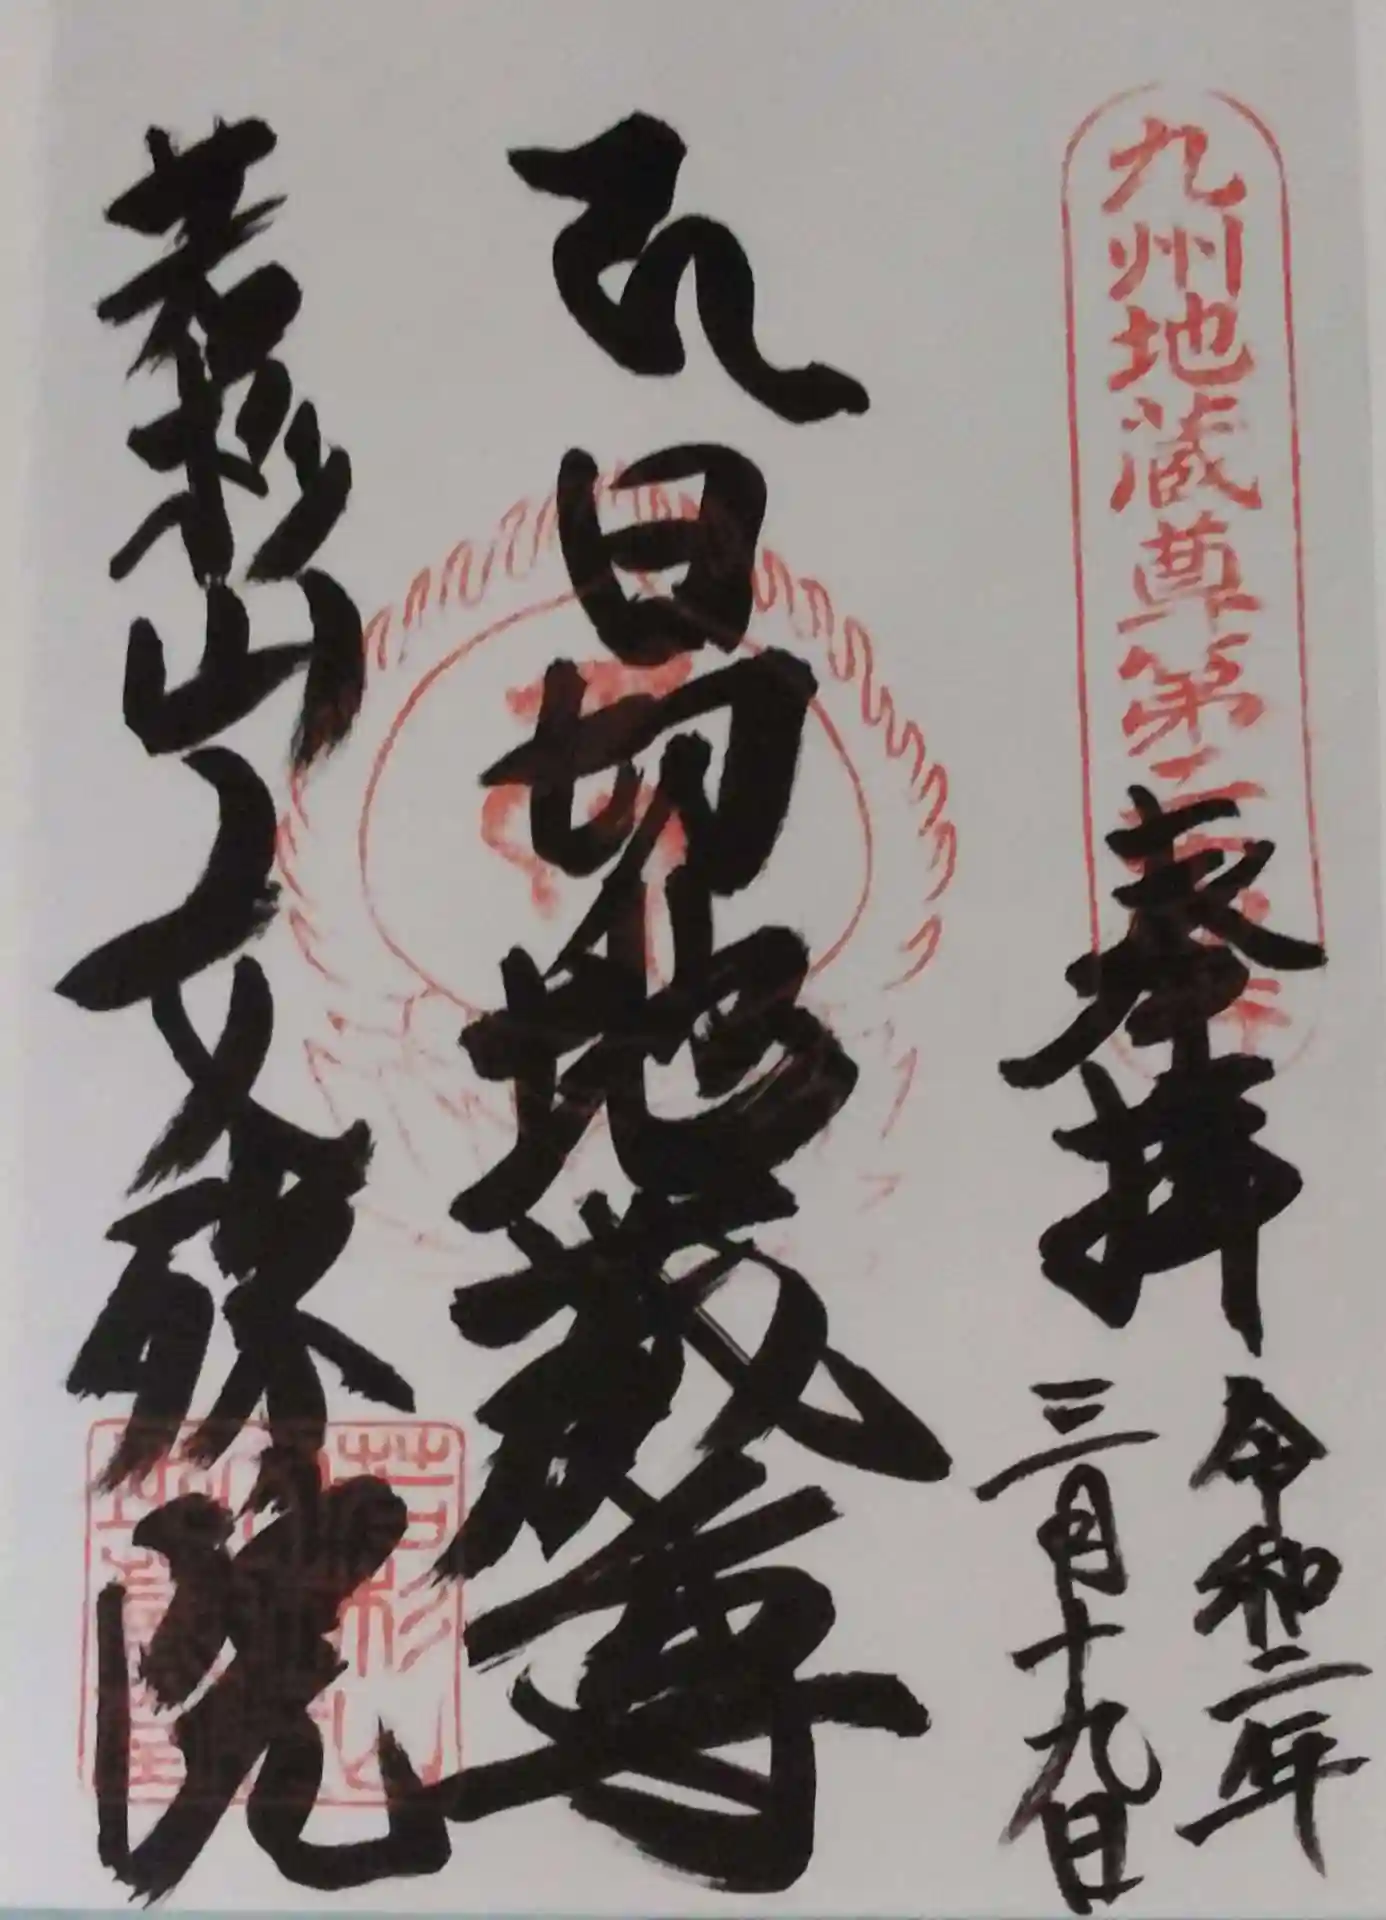 九州地蔵尊第二
奉拝
令和二年
三月十九日
日切地蔵尊
若杉山
文殊院
若杉山